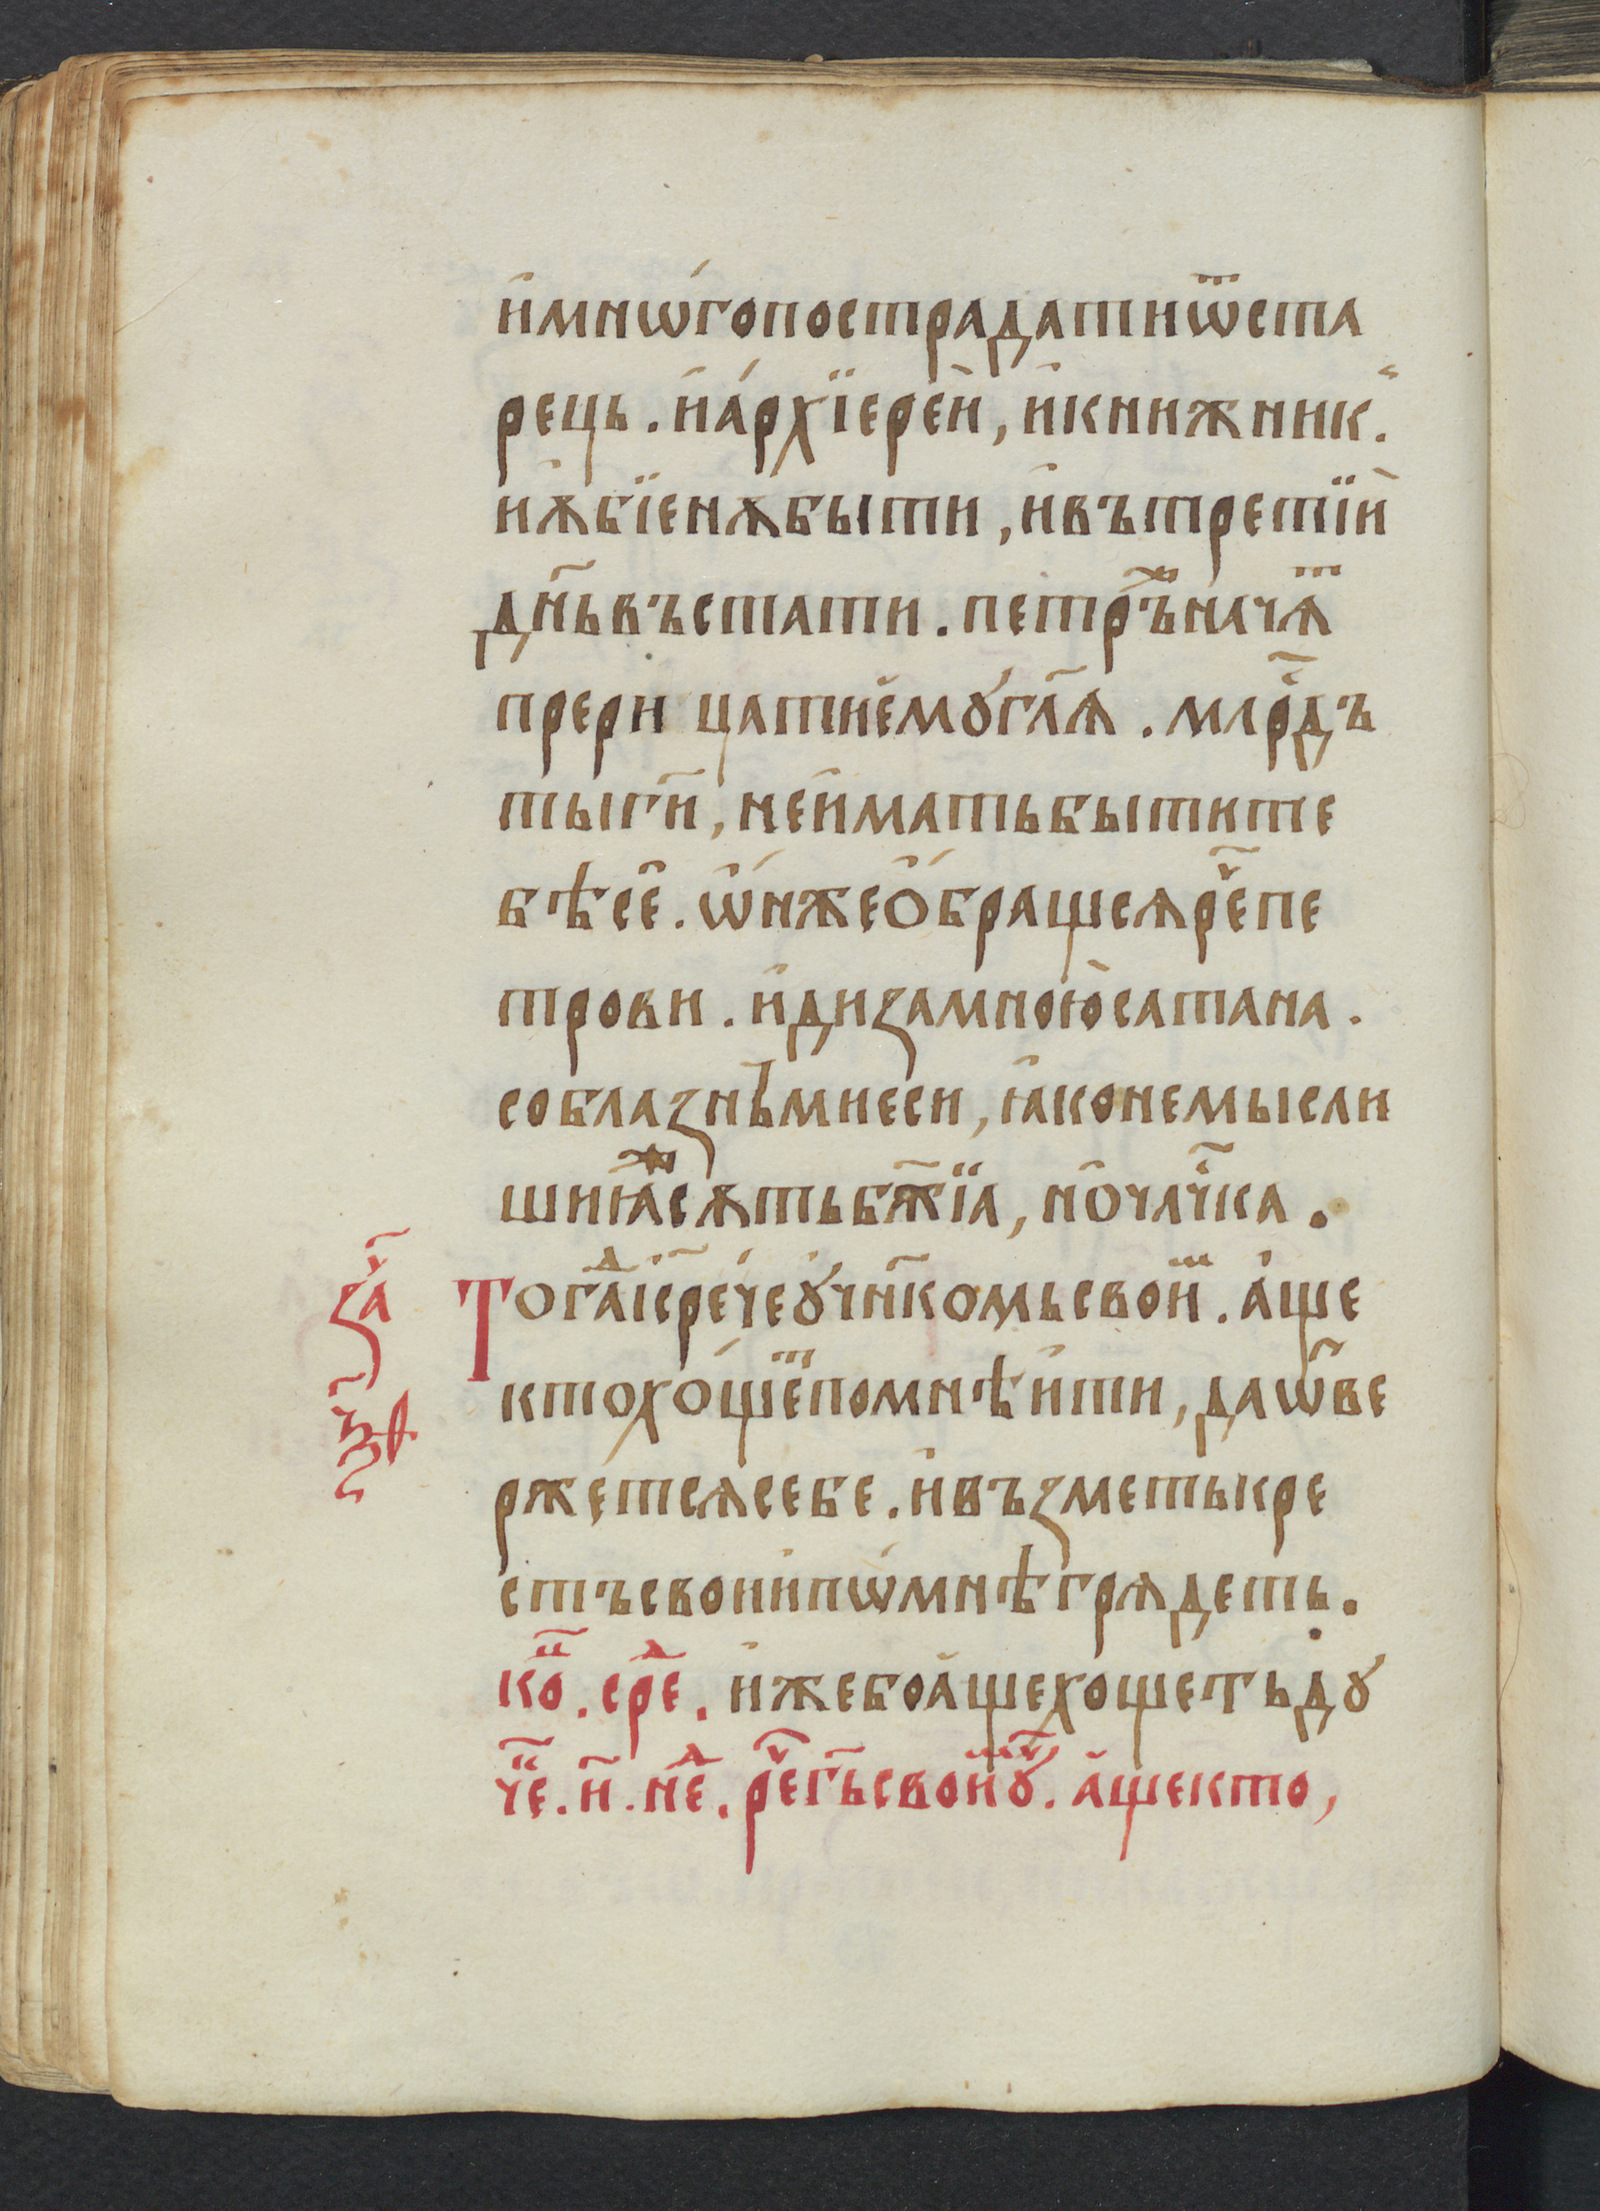 и҆мнѡ́гопострадатиѿста
рець. и҆а́рхїере́и, и҆книжник.
и҆ꙗбїенѫбыти, и҆вътретїи
дн҃ьвъстати. петръⷤнача́ⷮ
прерицатиемꙋ́гл҃ѧ. млⷭ҇рдъ
тыгⷭ҇и, неи҆матьбытите
бѣсѐ. ѡ҆нжео҆́бращсѧрⷱ҇епе
трови. и҆дизамною̀сатана.
соблазнъ̀миеси, ꙗ҆конемысли
шиꙗⷤсѫтьбж҃їа, но҆члⷱ҇ка.
Тогⷣаі҃срече́ꙋчн҃комьсвоиⷨ. а҆ще
ктохо́щеⷮпомнѣи҆ти, даѿве
ржетсѧсебе. и҆възметькре
стъсвоии҆пѡ́мнѣгрѧдеть.
коⷰ. среⷣ. и҆жебоа҆щехощетьдꙋ
заⷱ҇
ѯ҃в
чеⷮ. и҃. неⷣ. рⷱ҇егь҃своиⷨꙋⷱ҇. а҆щекто,